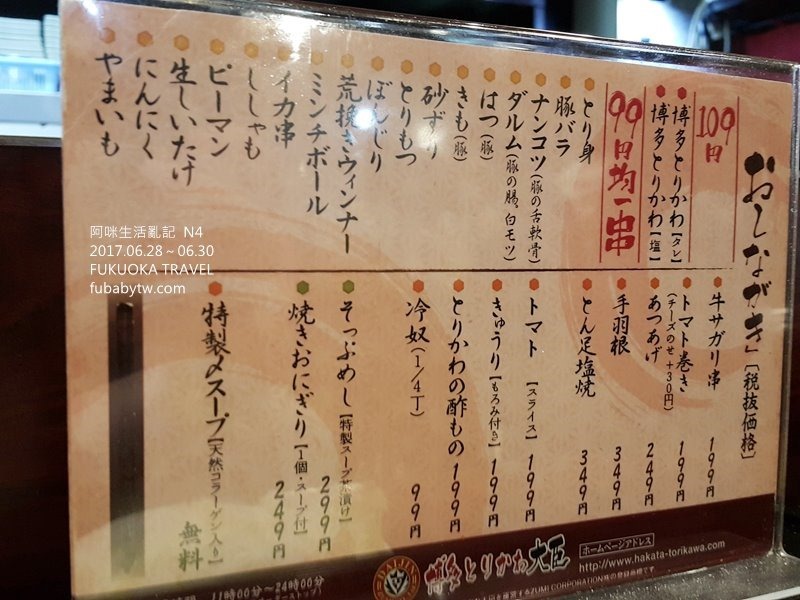 おしながき［税抜価格］
109円
博多とりかわ【タレ】
博多とりかわ【塩】
99円均一串
とり身
豚バラ
ナンコツ(豚の舌軟骨)
ダルム(豚の腸、白モツ)
はつ(豚)
きも(豚)
砂ずり
とりもつ
ぼんじり
荒挽きウィンナー
ミンチボール
イカ串
ししゃも
ピーマン
生しいたけ
にんにく
やまいも
牛サガリ串 199円
トマト巻き 199円
(チーズのせ +30円)
あつあげ 249円
手羽根 349円
とん足塩焼 349円
トマト【スライス】 199円
きゅうり【もろみ付き】 199円
とりかわの酢もの 199円
冷奴(1/4丁) 99円
そっぷめし【特製スープ茶漬け】 299円
焼きおにぎり【1個・スープ付】 249円
特製〆スープ【天然コラーゲン入り】 無料
阿咪生活亂記 N4
2017.06.28~06.30
FUKUOKA TRAVEL
fubabytw.com
DAIJIN
博多とりかわ大臣
ホームページアドレス
http://www.hakata-torikawa.com
11時00分～24時00分
ZUMI CORPORATION